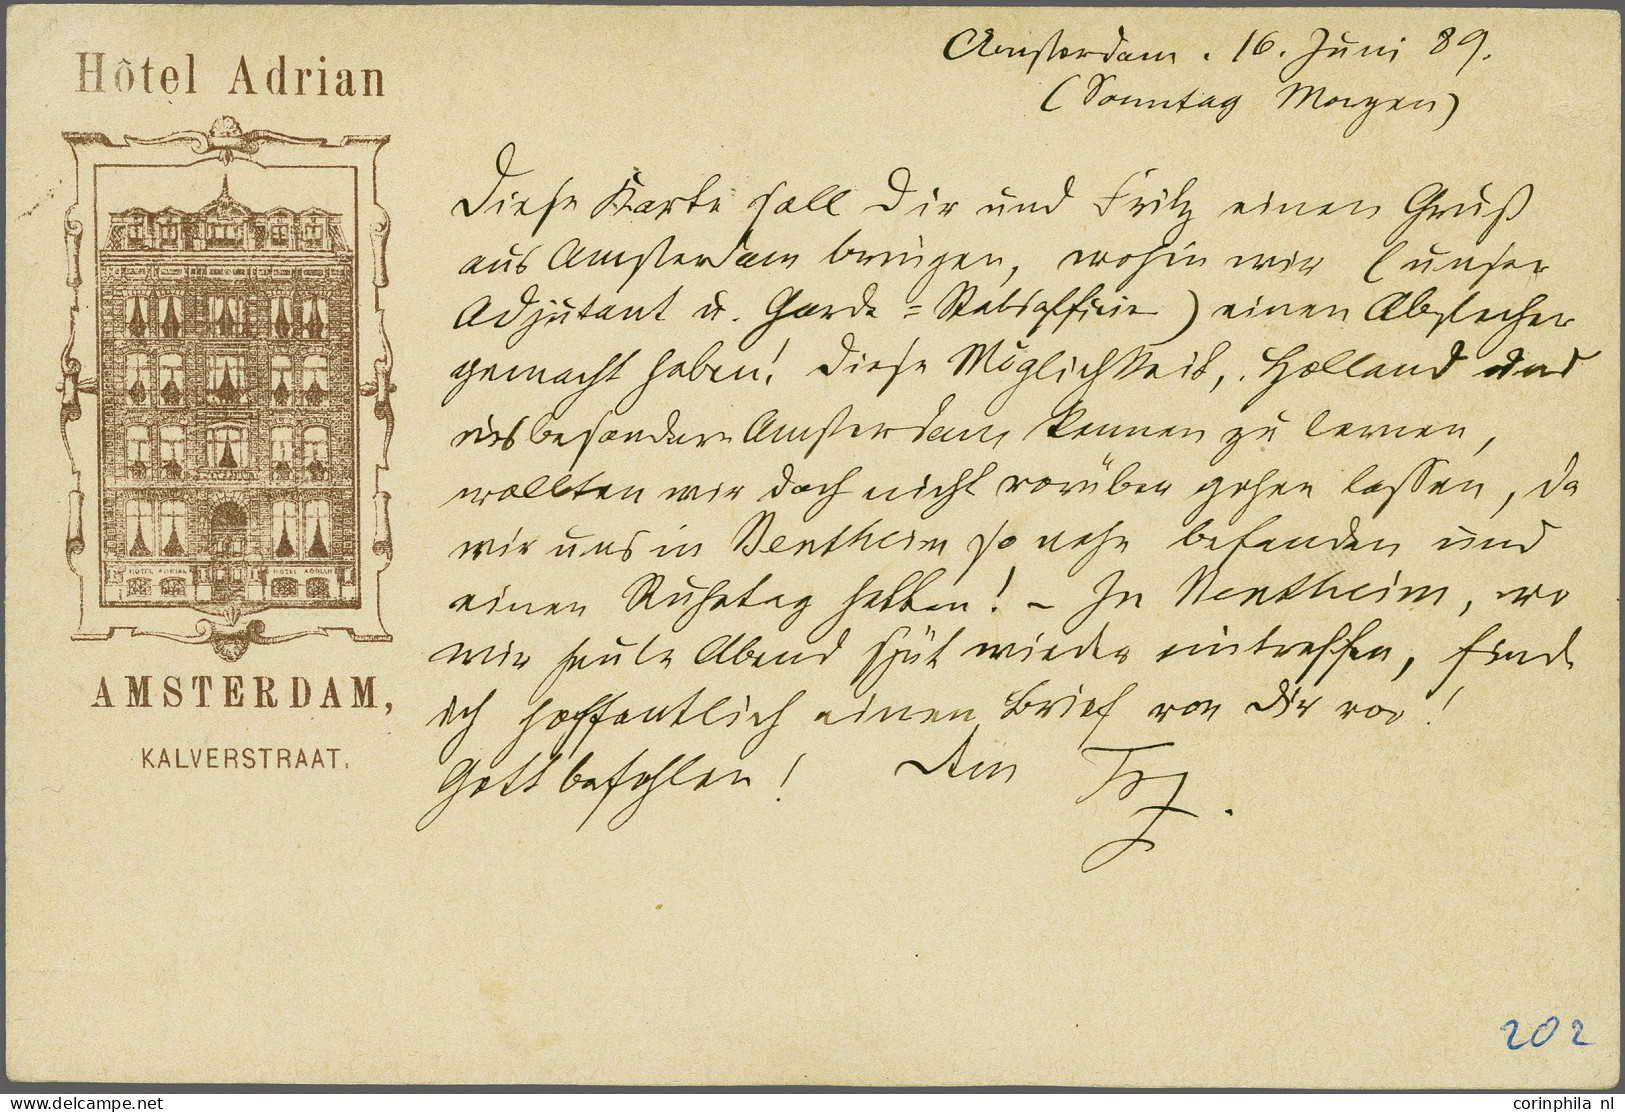 Hôtel Adrian
HOTEL ADRIAN HOTEL ADRIAN
AMSTERDAM,
KALVERSTRAAT.
Amsterdam. 16. Juni 89.
(Sonntag Morgen)
Diese Karte soll Dir und Fritz einen Gruß
aus Amsterdam bringen, wohin wir (unser
Adjutant u. Garde = Stabsofficier) einen Abstecher
gemacht haben! Diese Möglichkeit, Holland und
insbesondere Amsterdam kennen zu lernen,
wollten wir doch nicht vorüber gehen lassen, da
wir uns in Bentheim so nahe befanden und
einen Ruhetag hatten! – In Bentheim, wo
wir heute Abend spät wieder eintreffen, finde
ich hoffentlich einen Brief von Dir vor!
Gott befohlen! Dein
202
corinphila nl